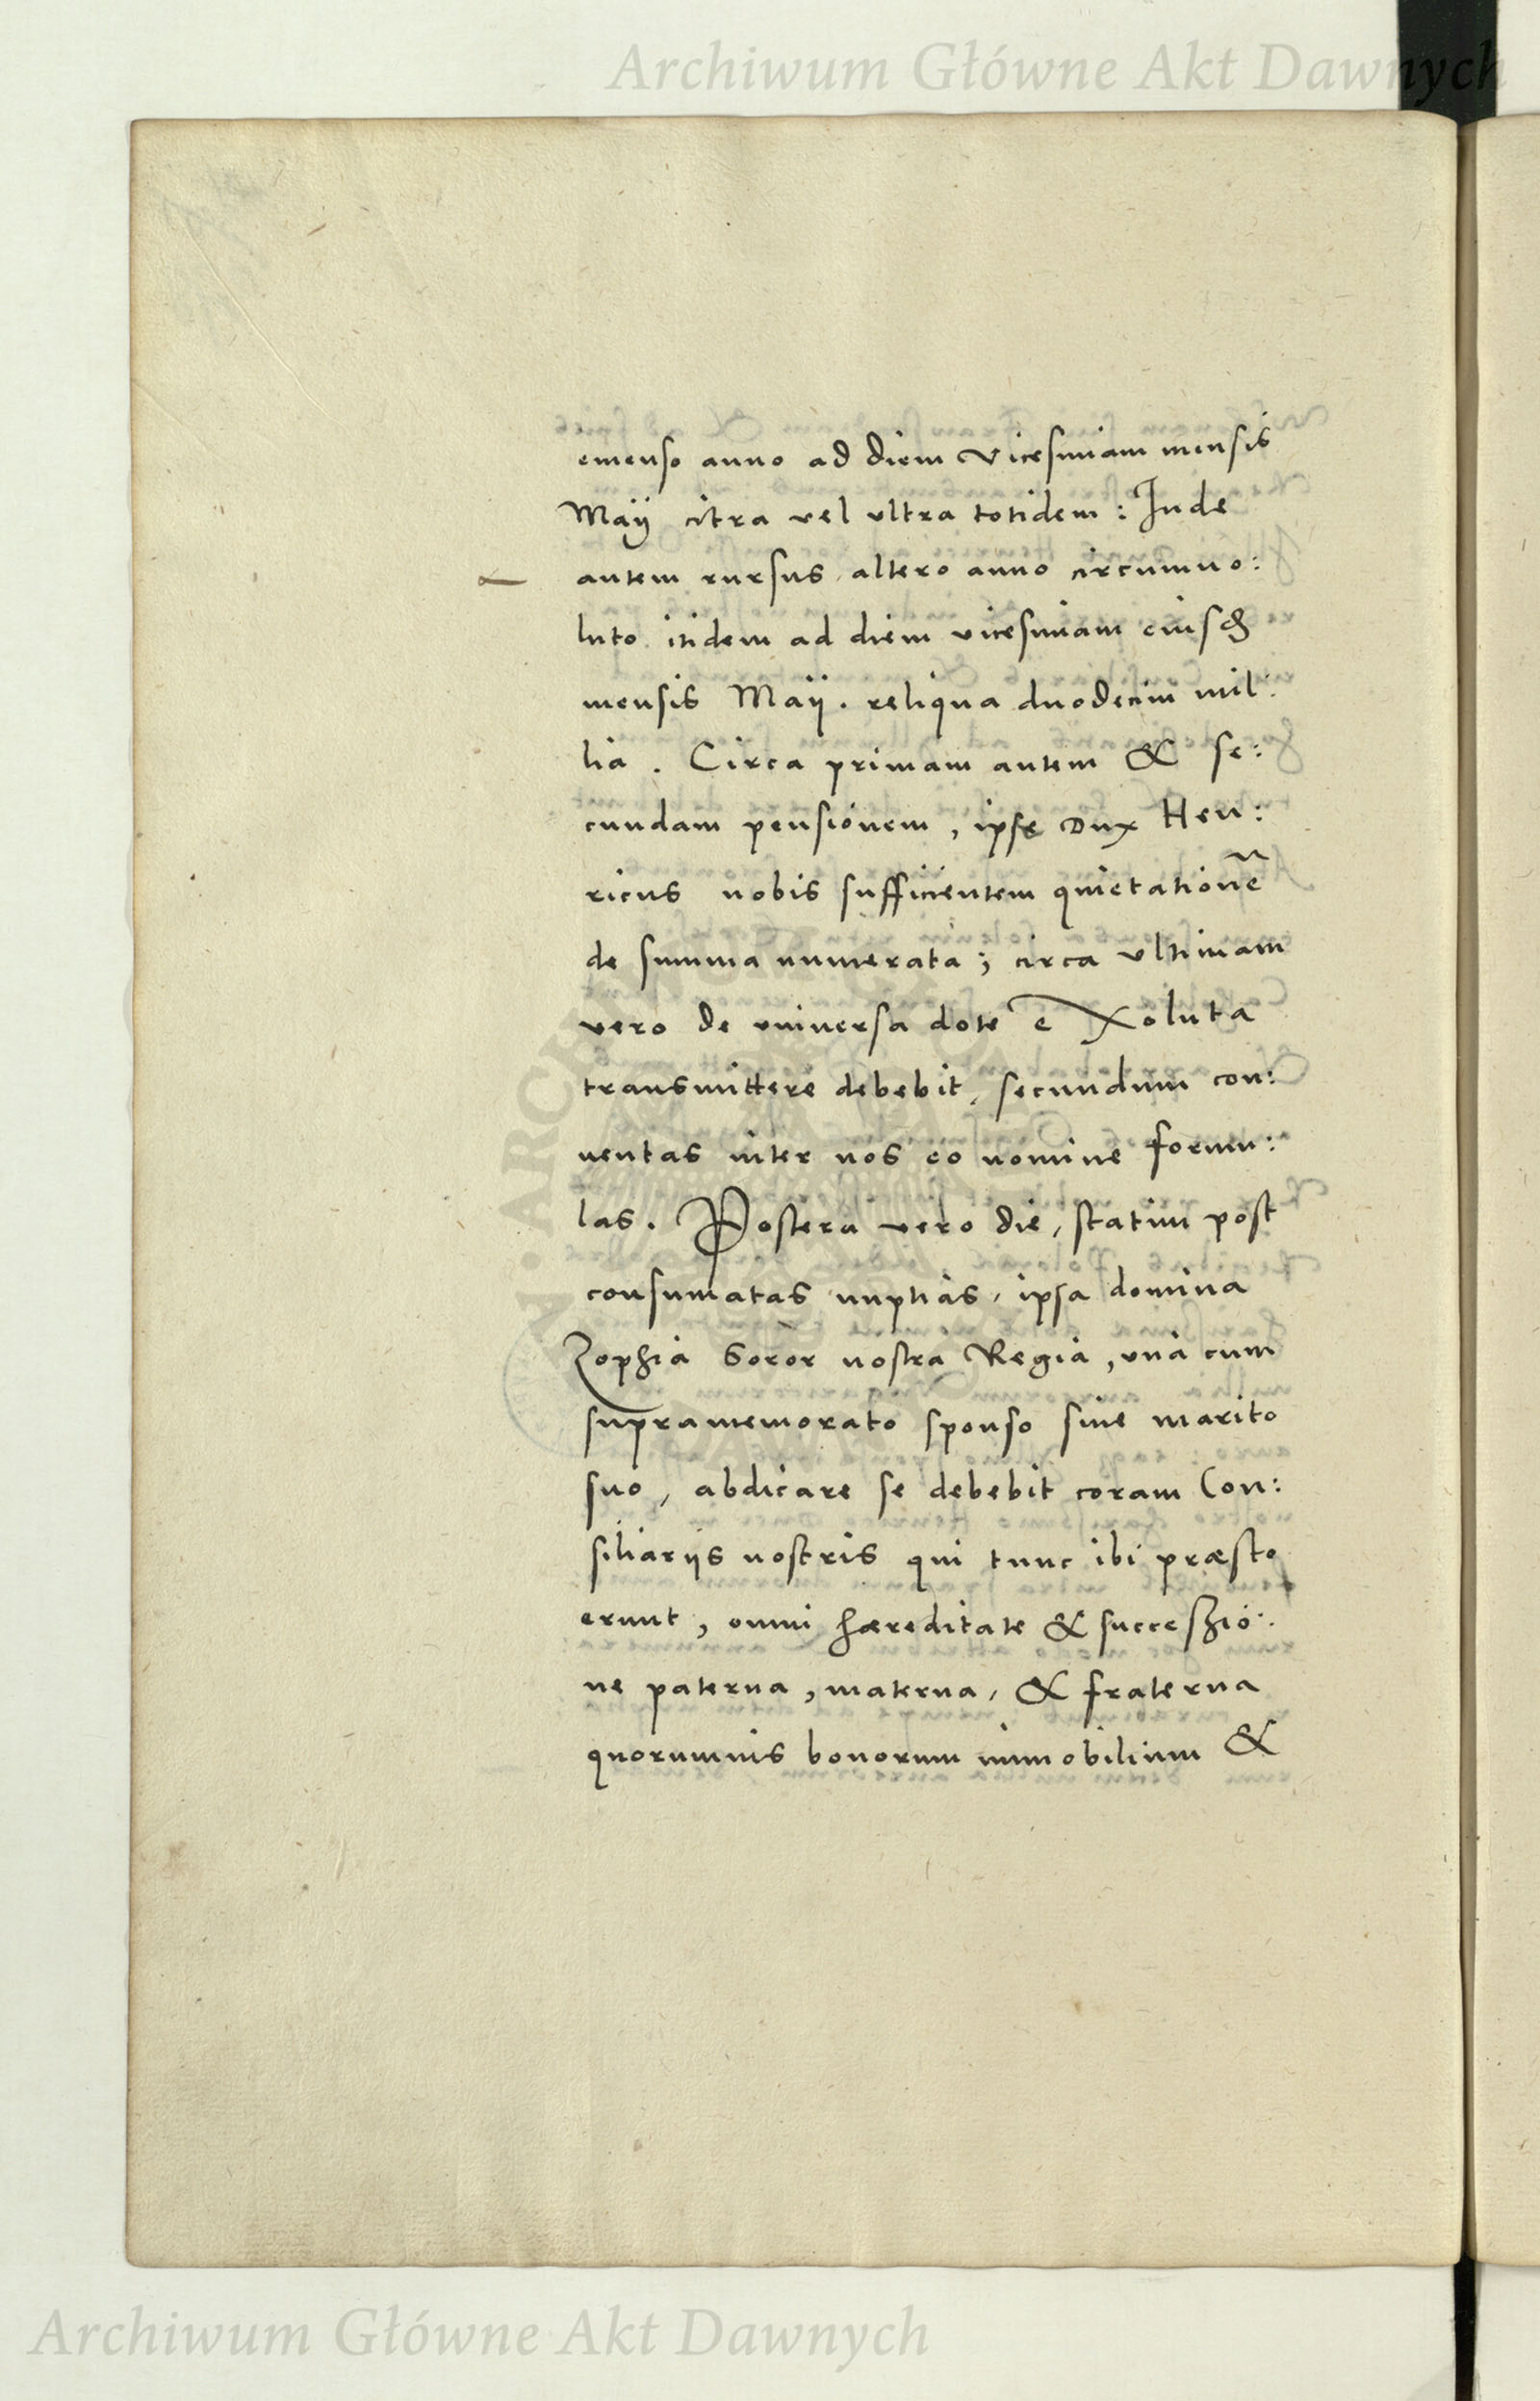 Archiwum Główne Akt Dawnych
emenso anno ad diem vicesimam mensis
Maij citra vel ultra totidem : Inde
autem rursus altero anno circumuo:
luto itidem ad diem vicesimam eiusdē
mensis Maij . reliqua duodecim mil:
lia . Circa primam autem & se:
cundam pensionem , ipse Dux Hen:
ricus nobis sufficientem quietationē
de summa numerata ; circa ultimam
vero de universa dote exoluta
transmittere debebit , secundum con:
uentas inter nos eo nomine formu:
las . Postera vero die , statim post
consumatas nuptias , ipsa domina
Zophia Soror nostra Regia , una cum
supramemorato sponso sive marito
suo , abdicare se debebit coram Con:
siliariis nostris qui tunc ibi præsto
erunt , omni hæreditate & successio:
ne paterna , materna , & fraterna
quorumvis bonorum immobilium &
Archiwum Główne Akt Dawnych